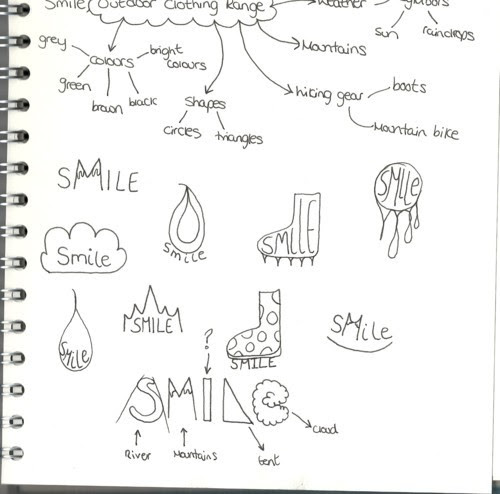 Smile (Outdoor Clothing Range)
weather
Sun
raindrops
Mountains
grey
colours
bright
colours
green
brown
black
Shapes
circles
triangles
hiking gear
boots
Mountain bike
SMILE
Smile
Smile
SMILE
SMILE
Smile
SMILE
SMILE
SMile
?
SMILE
River
Mountains
tent
cloud